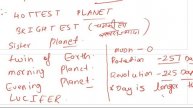 HOTTEST PLANET
BRIGHTEST (
Sister Planet
twin of Earth
morning Planet
Evening Planet
LUCIFER
moon - 0
Rotation - 257 Da
Revolution - 225 Da
Day is longer